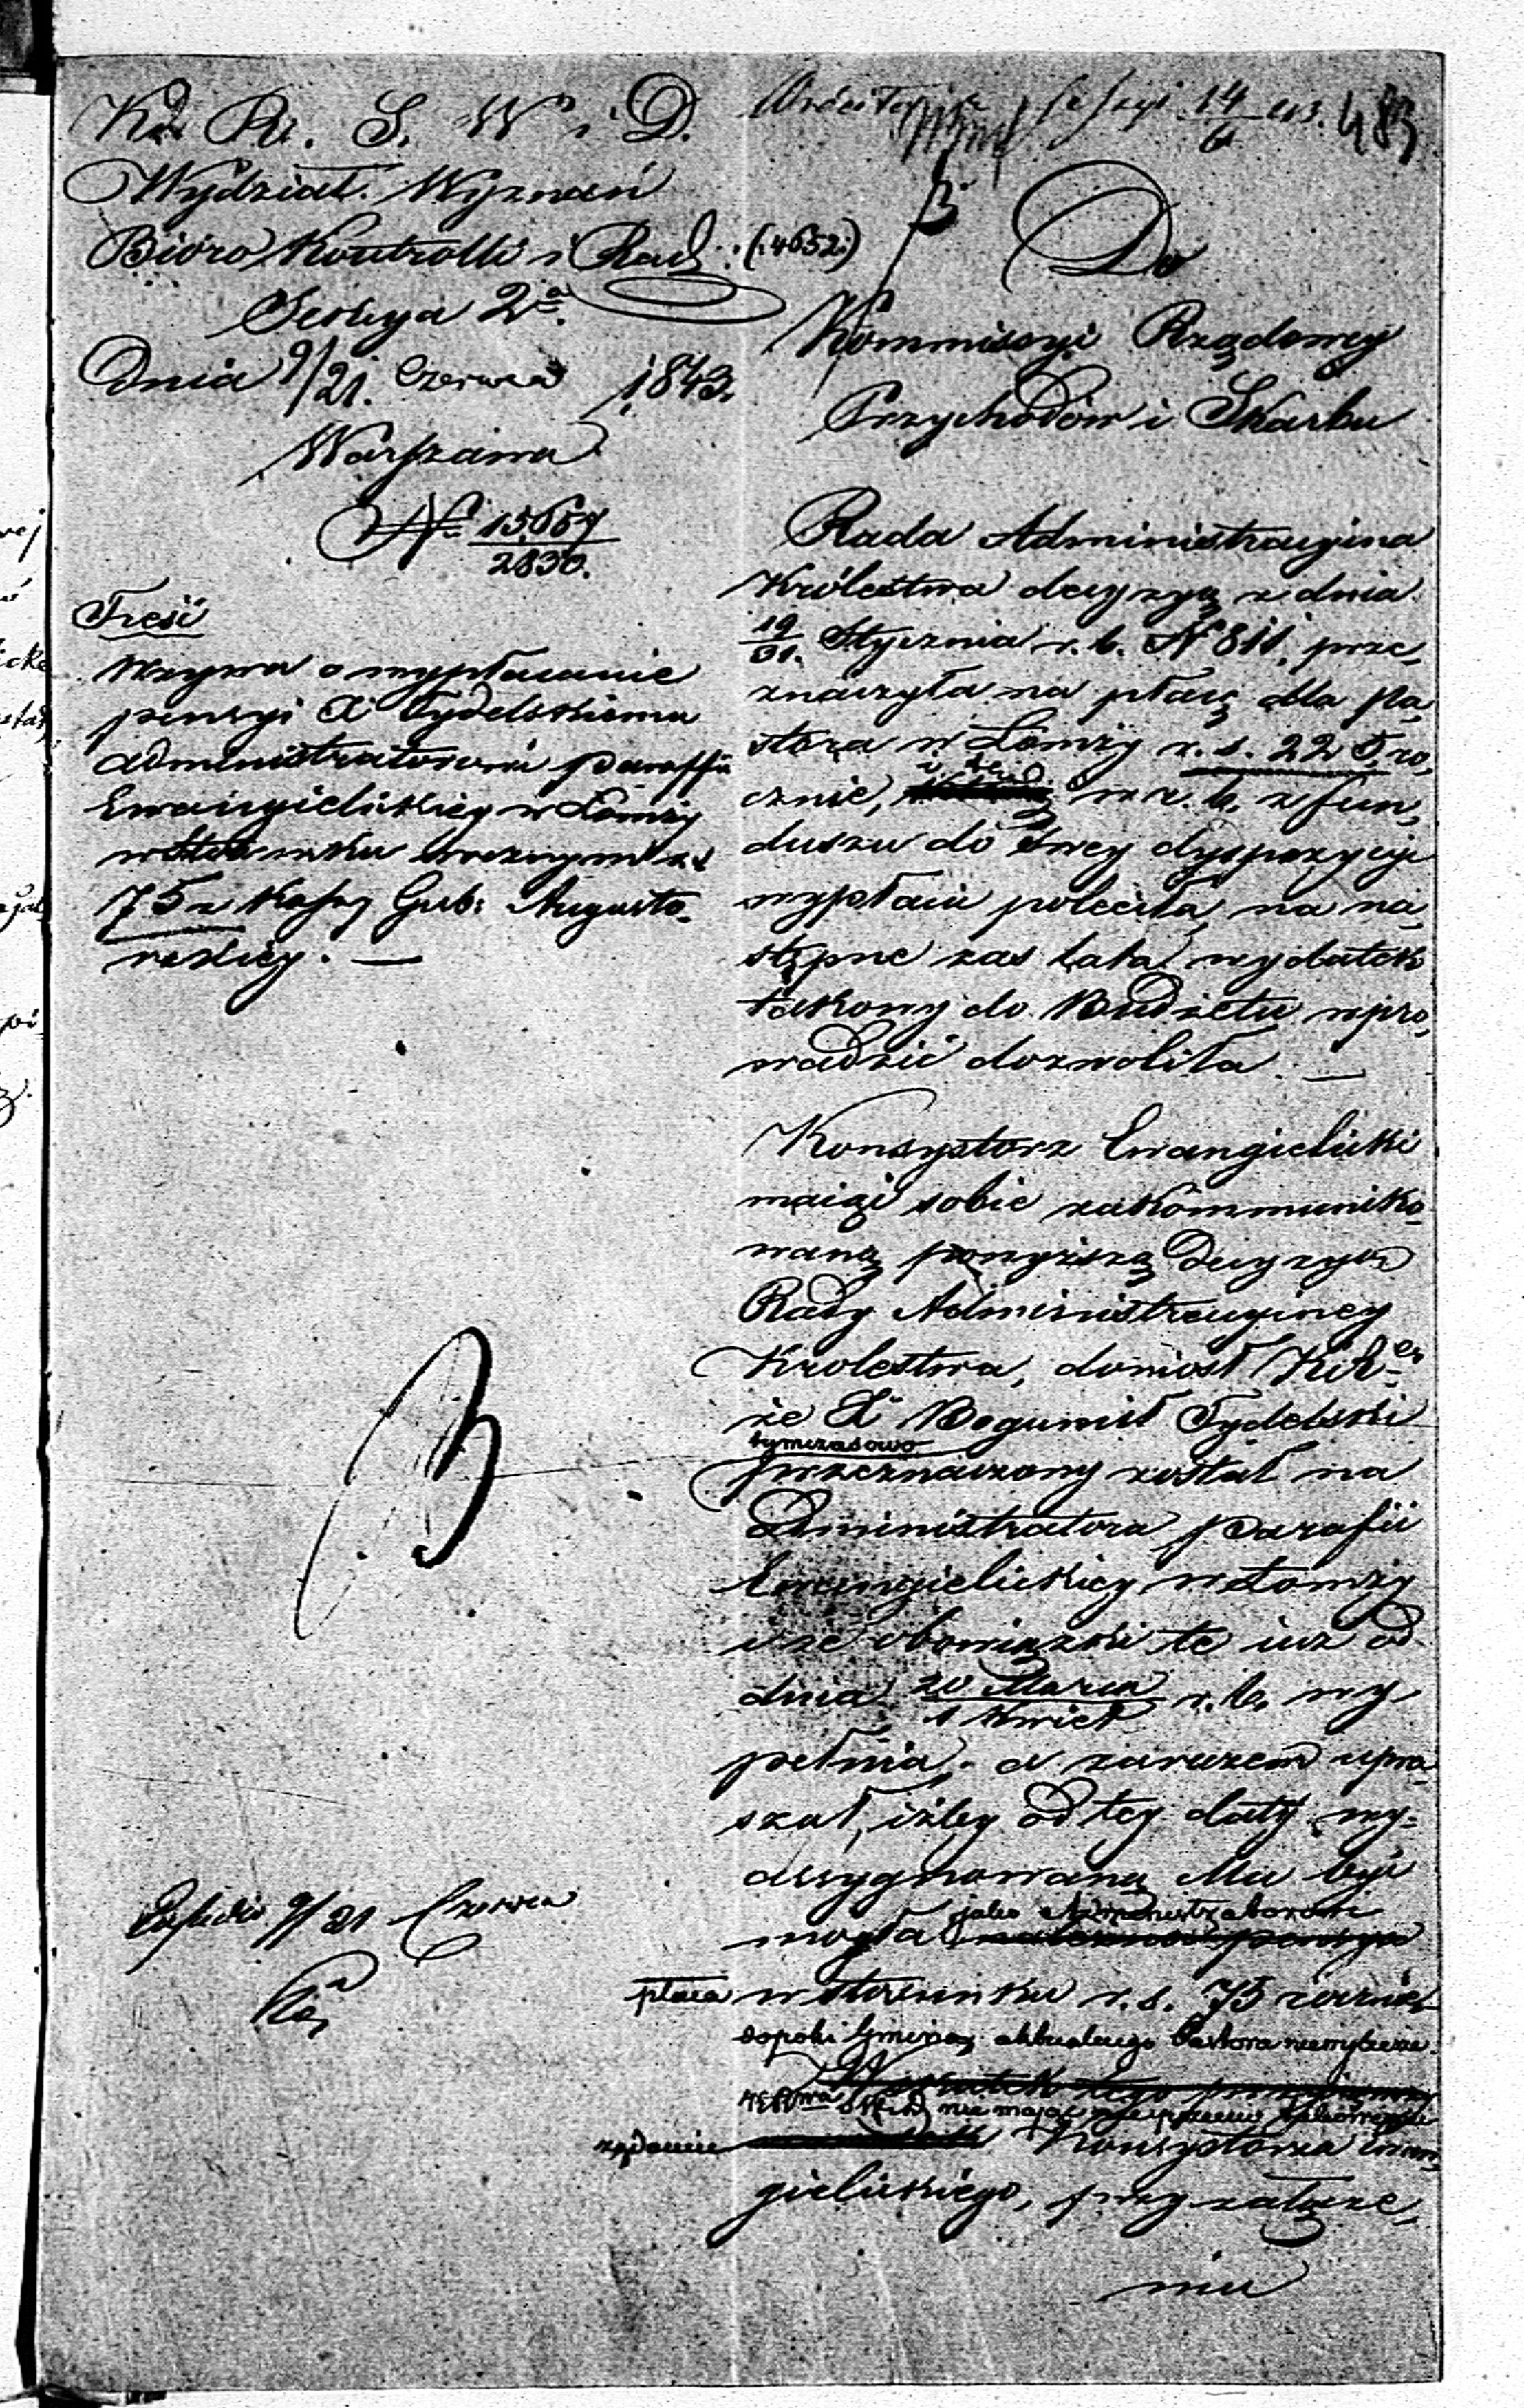 K. R. S. W. i D.
Wydział Wyznań
Bióro Kontrolli i Rach: (4652)
Sekcya 2a.
Dnia 9/21. Czerwca 1843.
Warszawa
No 15667
2830.
Treść
Wzywa o wypłacanie
pensyi X Tydelskiemu
administratorowi paraffii
Ewangielickiey w Łomży
w stosunku rocznym rs
75 z Kassy Gub: Augusto-
wskiey. —
Czerwca
9/21
14
6
483
Do
Kommissyi Rządowey
Przychodów i Skarbu
Rada Administracyina
Królestwa decyzyą z dnia
19/31. Stycznia r. b. N 811, prze-
znaczyła na płacę dla Pa-
stora w Łomży r. s. 225 ro-
cznie, i tę w r. b. z fun-
duszu do swey dyspozycyi
wypłacić poleciła, na na-
stępne zas lata wydatek
takowy do Budżetu wpro-
wadzić dozwoliła. —
Konsystorz Ewangielicki
maiąc sobie zakommuniko-
waną powyższą Decyzyą
Rady Administracyiney
Krolestwa, doniosł
że X Bogumił Tydelski
tymczasowo
przeznaczony został na
Administratora parafii
Ewangielickiey w Łomży
i że obowiązki te iuż od
dnia 20 Marca / 1 Kwiet r. b. wy-
pełnia; a zarazem upra-
szał, iżby od tey daty wy-
assygnowaną Mu być
jako Administratorowi
mogła
płaca w stosunku r. s. 75 rocznie
dopoki Gmina aktualnego Pastora niewybierze.
nie mając
żądanie Konsystorza Ewan-
gielickiego, przy załącze-
niu